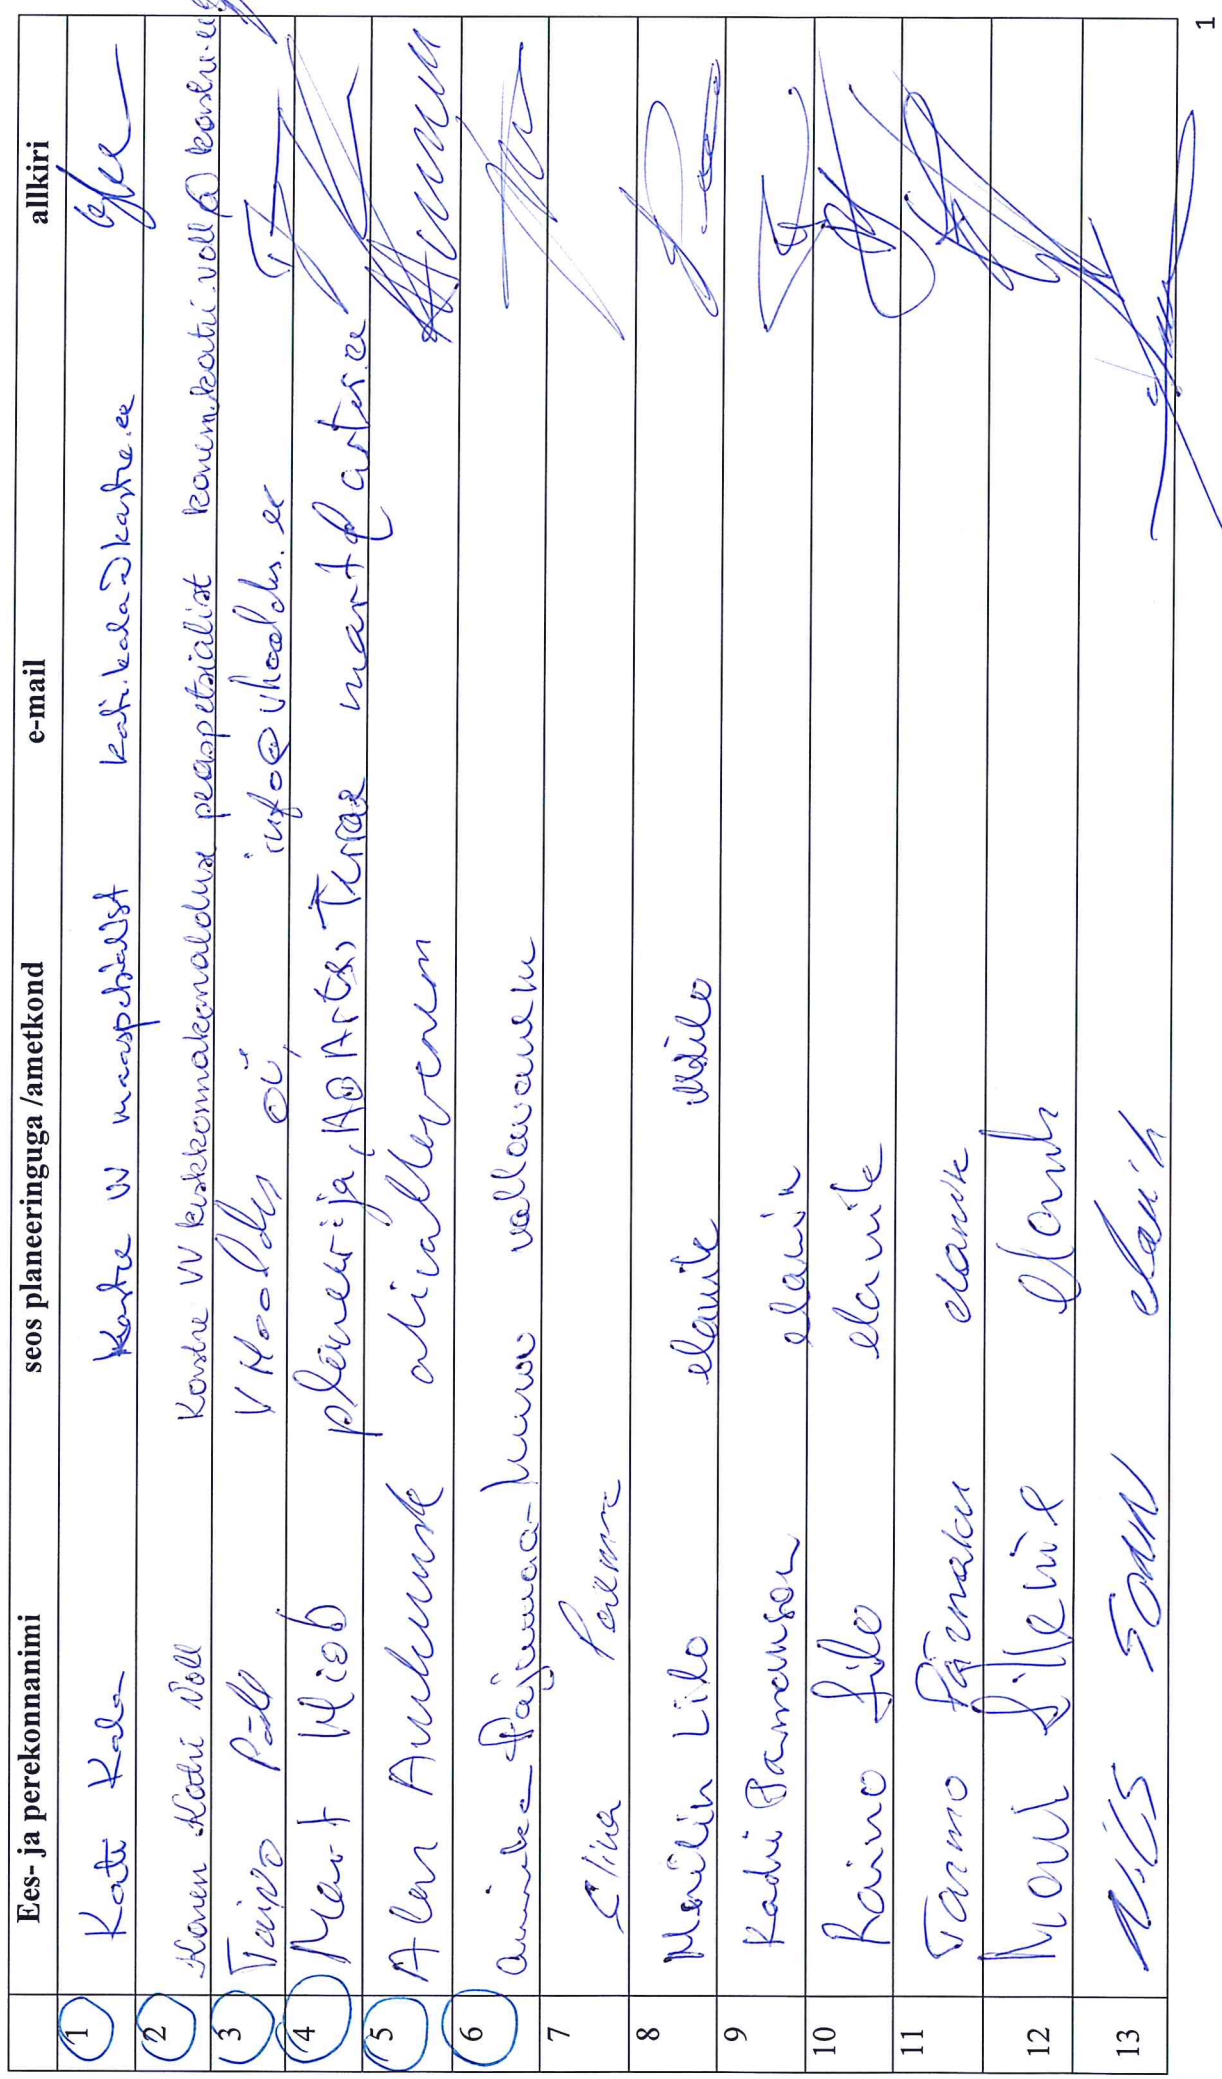 Ees- ja perekonnanimi seos planeeringuga /ametkond e-mail allkiri
1 Kati Kala Kastre VV maaspetsialist kati.kala@kastre.ee
2 Karen Katri Voll Kastre VV keskkonnakorralduse peaspetsialist karen.katri.voll@kastre.ee
3 Taivo Pôld V Hooldus OÜ info@vhooldus.ee
4 Mart Hiob planeerija, AB Artes Terrae mart@artes.ee
5 Alar Aukuusk abivallavanem
6 Annika Pajumaa-Murov vallavanem
7 Elina Peilman
8 Merilin Lille elanik
9 Kadri Parmanson elanik
10 Raino elanik
11 Tarmo Pärmaku elanik
12 elanik
13 Nils Sonn elanik
1